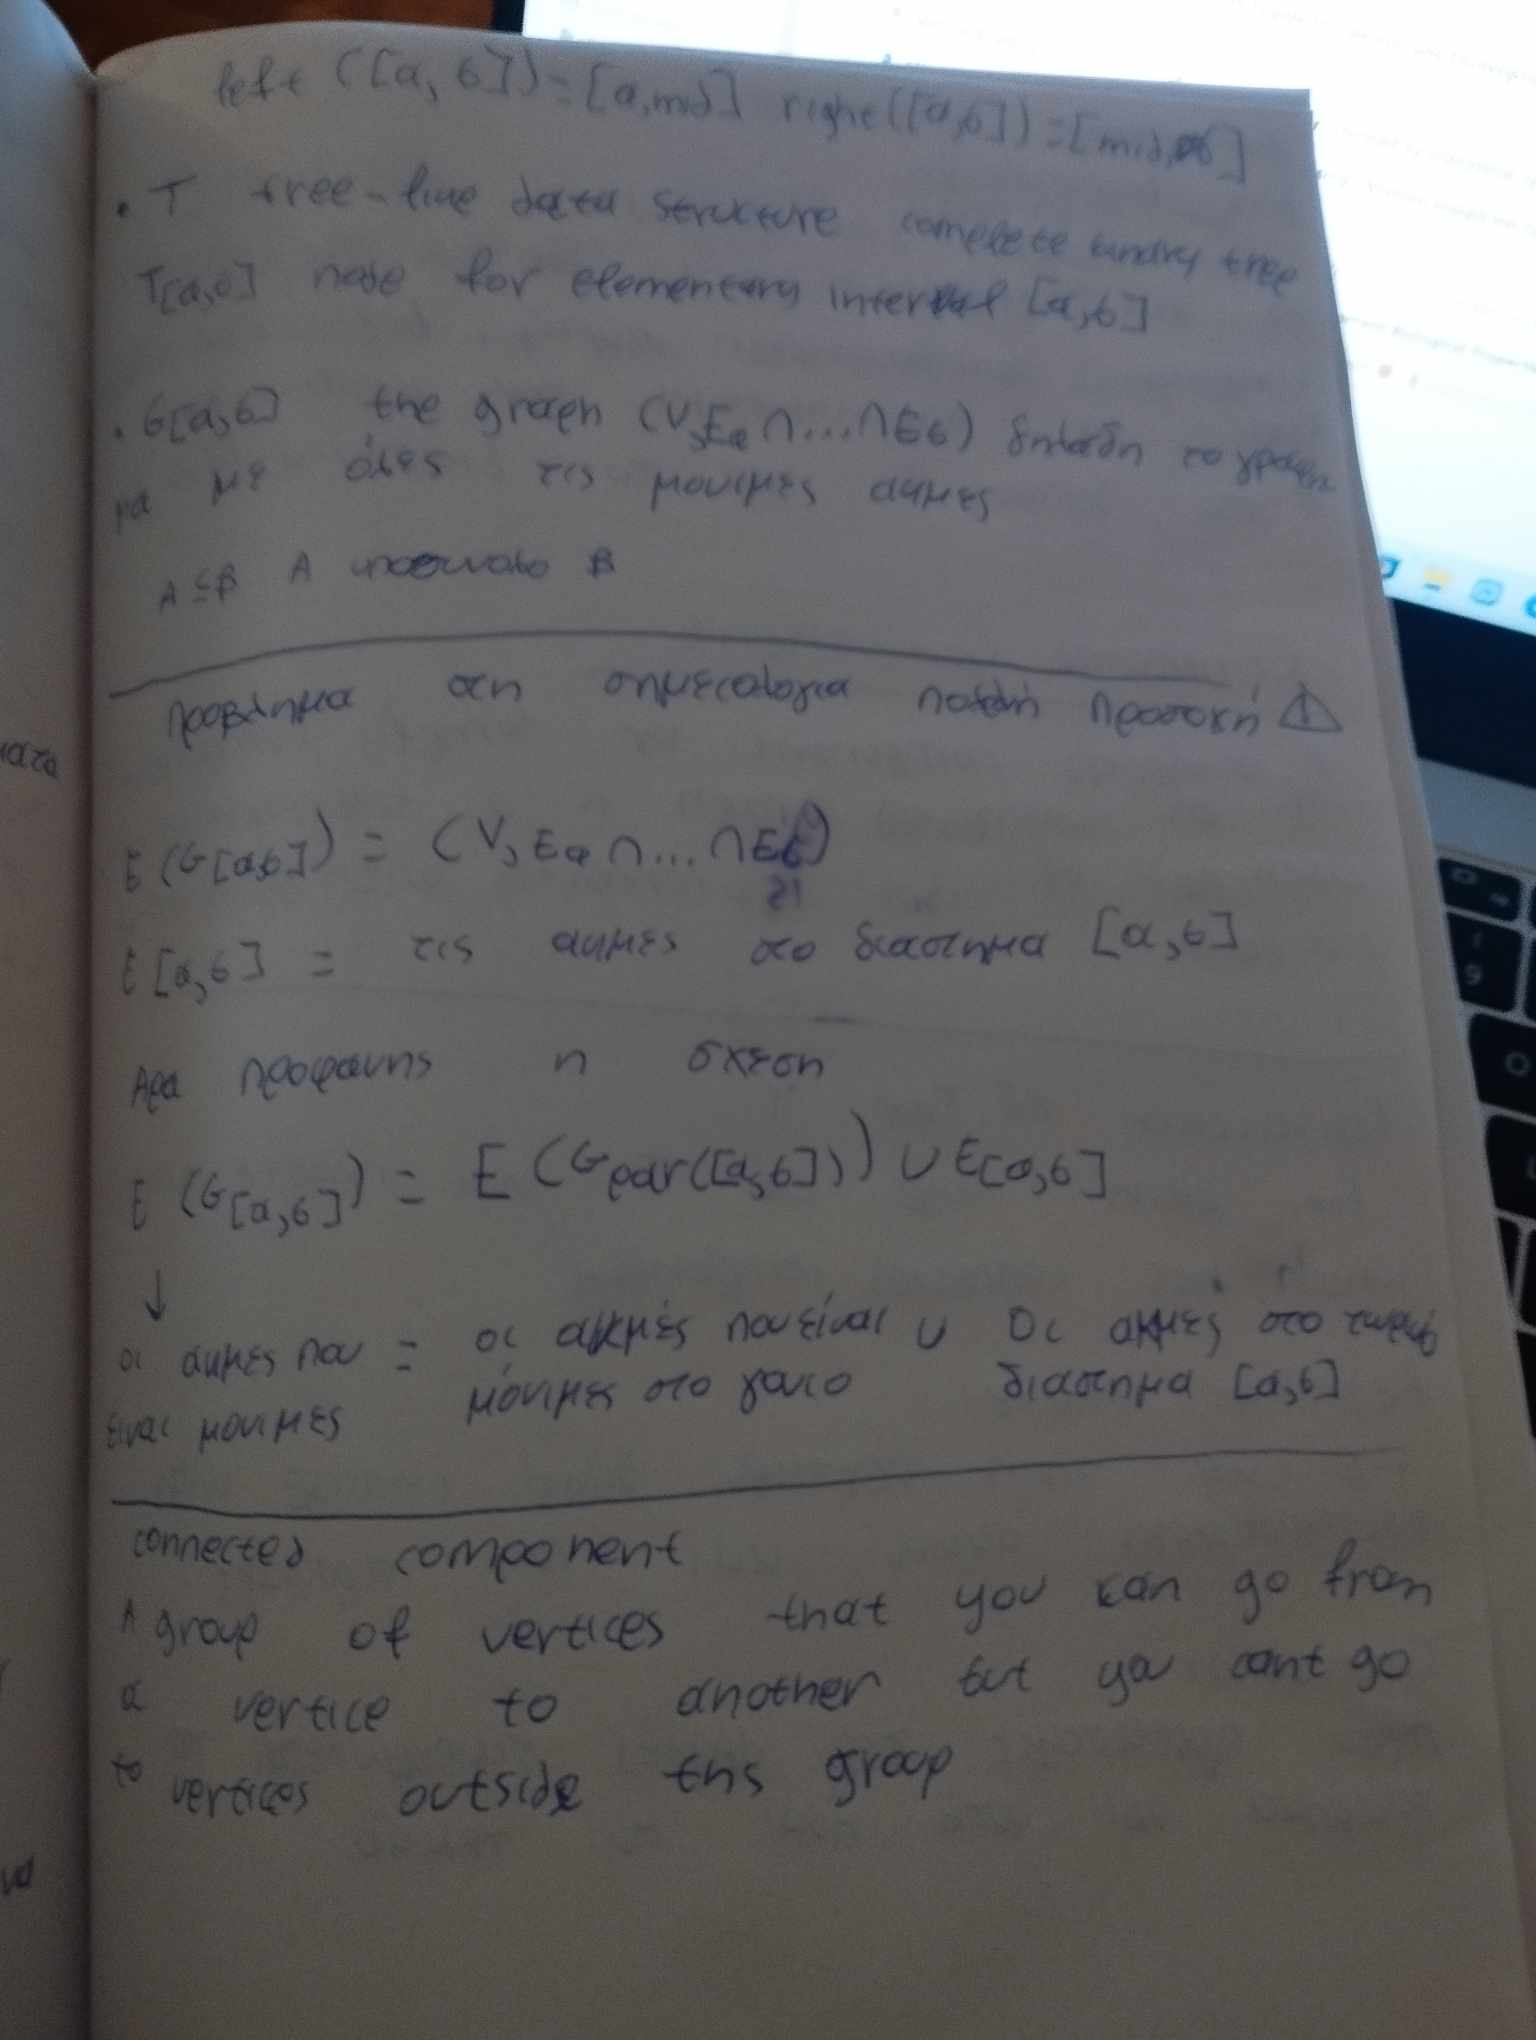 left ([a, b]) = [a, mid] right([a,b]) = [mid, b]
. T tree-line data structure complete binary tree
T[a,b] node for elementary interval [a,b]
. G[a,b] the graph (V, Ea ∩ ... ∩ Eb) δηλαδη το γραφη
μα με όλες τις μονιμες ακμες
A ⊆ B A υποσυνολο B
προβλημα στη σημειολογια πολλή προσοχή ⚠
E (G[a,b]) = (V, Ea ∩ ... ∩ Eb)
E [a,b] = τις ακμες στο διαστημα [a,b]
Αρα προφανης η σχεση
E (G[a,b]) = E (Gpar([a,b])) ∪ E[a,b]
↓
οι ακμες που = οι ακμές που είναι ∪ Οι ακμές στο τωρινό
ειναι μονιμες μόνιμες στο γονιο διαστημα [a,b]
connected component
A group of vertices that you can go from
a vertice to another but you cant go
to vertices outside this group
ματα
να